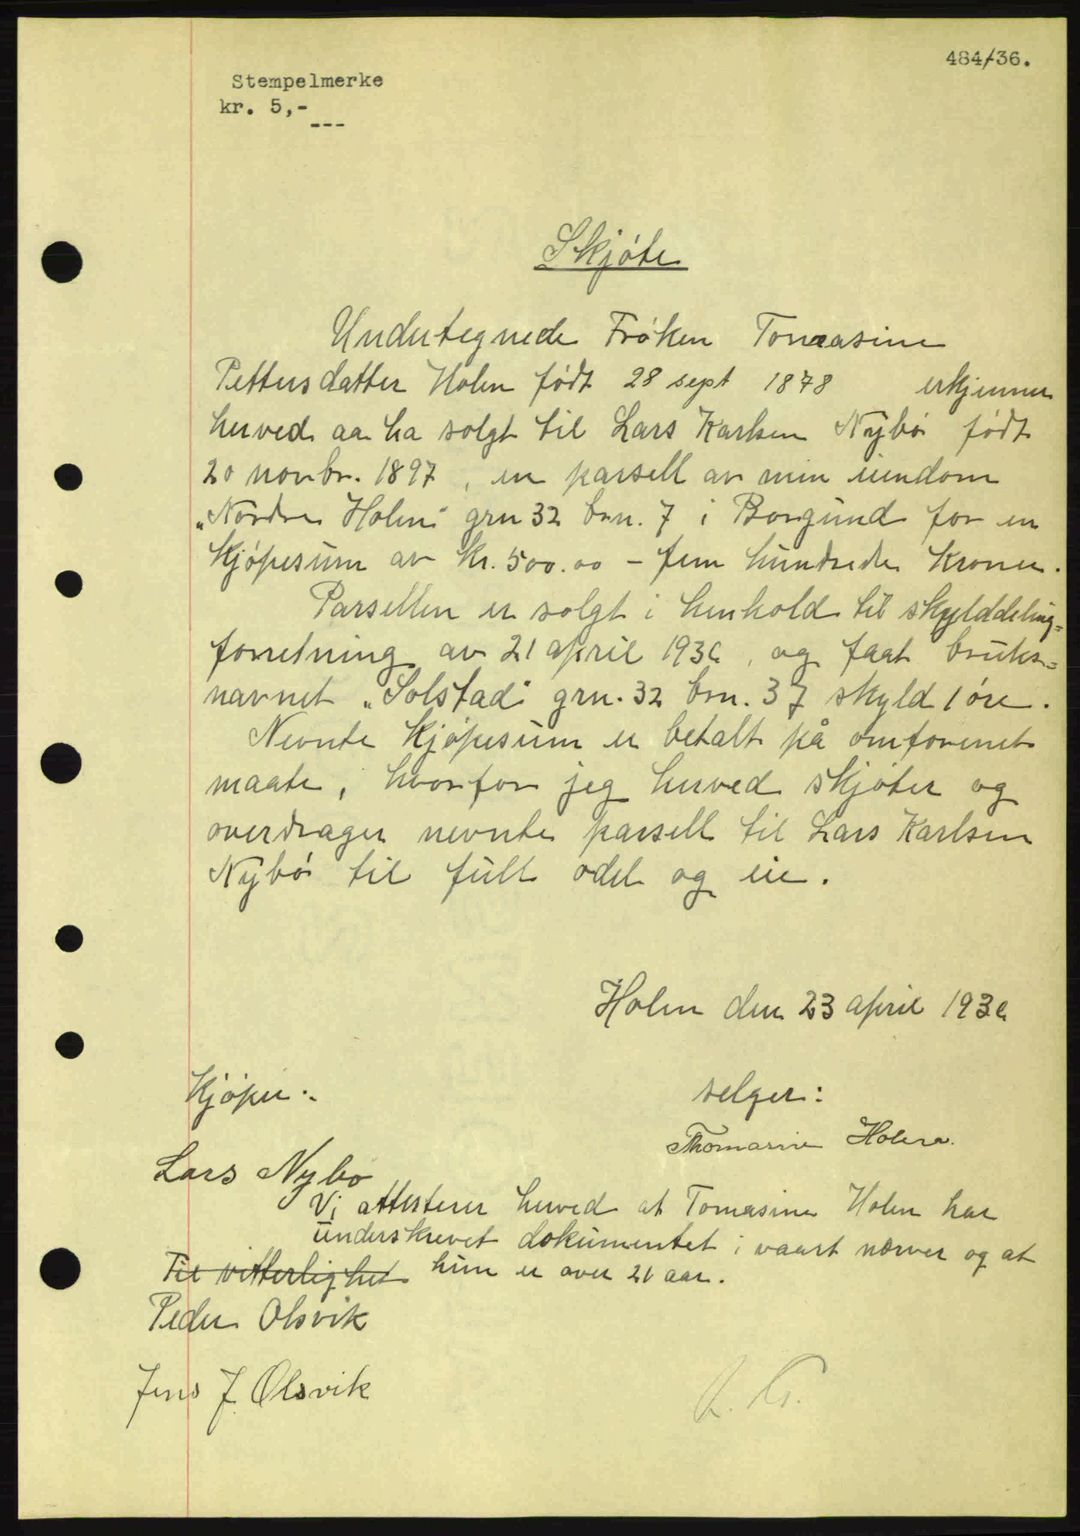 484/36.
Stempelmerke
kr. 5,-
---
Skjöte
Undertegnede Fröken Tomasine
Pettersdatter Holen födt 28 sept 1878 erkjenner
herved aa ha solgt til Lars Karlsen Nybö födt
20 novbr. 1897, en parsell av min eiendom
„Nordre Holen" grn 32 brn. 7 i Borgund for en
kjöpesum av kr. 500.00 – fem hundrede kroner.
Parsellen er solgt i henhold til skylddeling=
forretning av 21 april 1936, og faat bruks=
navnet „Solstad" grn. 32 brn. 37 skyld 1 öre.
Nevnte kjöpesum er betalt på omforenet
maate, hvorfor jeg herved skjöter og
overdrager nevnte parsell til Lars Karlsen
Nybö til fult odel og eie.
Holen den 23 april 1936
Kjöper:
selger:
Thomasine Holen.
Lars Nybö
Vi attesterer herved at Tomasine Holen har
underskrevet dokumentet i vaart nærver og at
Til vitterlighet hun er over 21 aar.
Peder Olsvik
Jens J. Olsvik